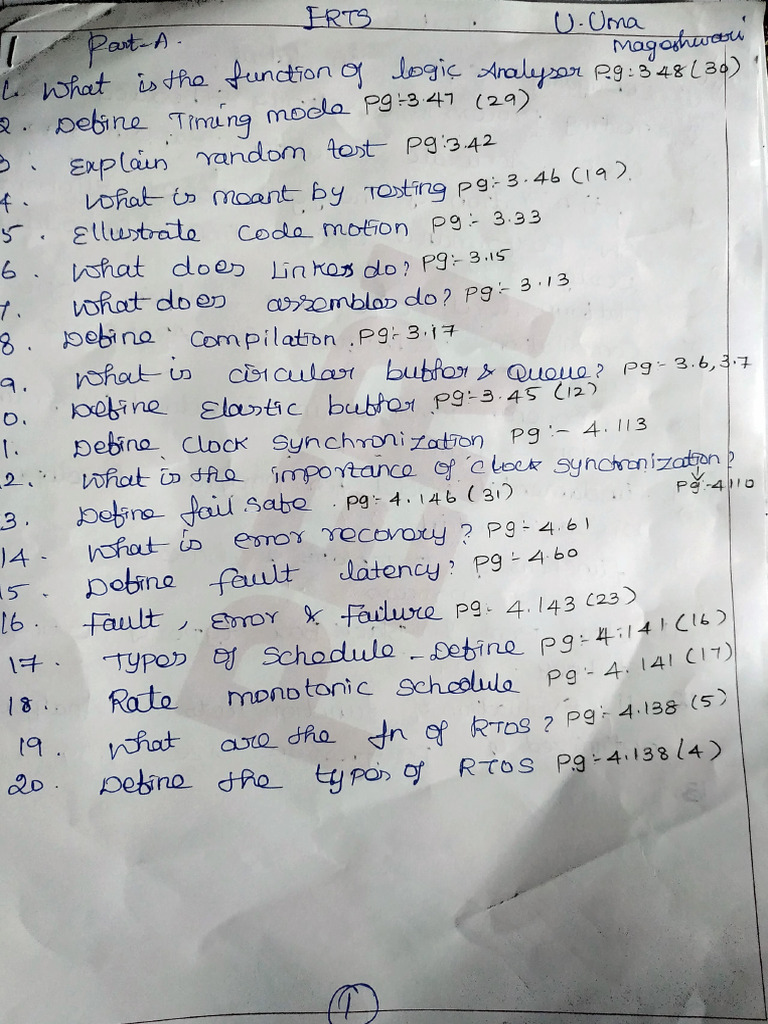 ERTS
U. Uma Mageshwari
Part-A.
1. What is the function of logic Analyser Pg:348(30)
2. Define Timing mode Pg:-3.47 (29)
3. Explain random test Pg:3.42
4. What is meant by Testing Pg:-3.46(19)
5. Ellustrate code motion Pg:- 3.33
6. What does Linker do? Pg:-3.15
7. What does assembler do? Pg:- 3.13
8. Define compilation. Pg:- 3.17
9. What is circular buffer & Queue? Pg:- 3.6, 3.7
0. Define Elastic buffer Pg:-3.45 (12)
1. Define Clock Synchronization Pg:- 4.113
2. What is the importance of clock synchronization?
Pg:-4110
3. Define fail safe. Pg:- 4.146(31)
14. What is error recovery? Pg:-4.61
15. Define fault latency? Pg:-4.60
16. Fault, Error & Failure Pg:- 4.143(23)
17. Types of Schedule - Define Pg:-4.141(16)
18. Rate monotonic Schedule Pg:- 4.141(17)
19. What are the fn of RTOS? Pg:-4.138(5)
20. Define the types of RTOS Pg:-4.138(4)
1